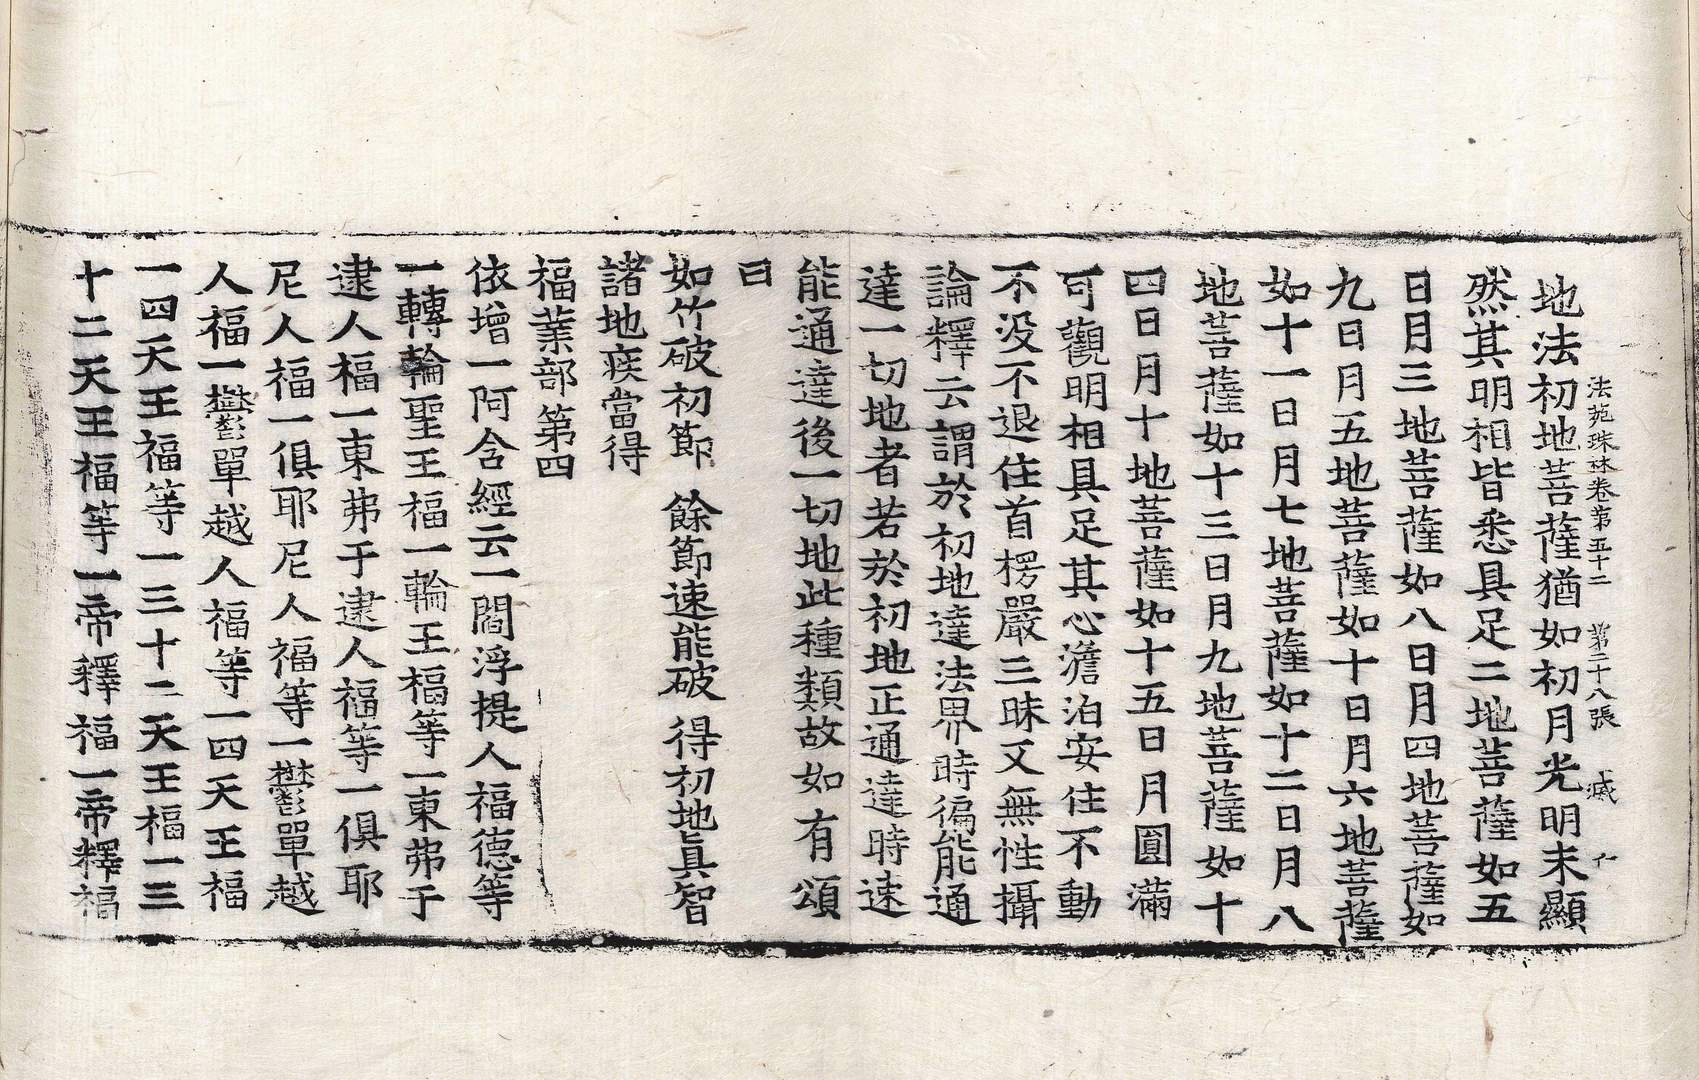 法苑珠林卷第五十二 第二十八張 
地法初地菩薩猶如初月光明未顯
然其明相皆悉具足二地菩薩如五
日月三地菩薩如八日月四地菩薩如
九日月五地菩薩如十日月六地菩薩
如十一日月七地菩薩如十二日月八
地菩薩如十三日月九地菩薩如十
四日月十地菩薩如十五日月圓滿
可觀明相具足其心澹泊安住不動
不没不退住首楞嚴三昧又無性攝
論釋云謂於初地達法界時徧能通
達一切地者若於初地正通達時速
能通達後一切地此種類故如有頌
曰
如竹破初節 餘節速能破 得初地真智
諸地疾當得
福業部第四
依增一阿含經云一閻浮提人福德等
一轉輪聖王福一輪王福等一東弗于
逮人福一東弗于逮人福等一俱耶
尼人福一俱耶尼人福等一鬱單越
人福一鬱單越人福等一四天王福
一四天王福等一三十二天王福一三
十二天王福等一帝釋福一帝釋福